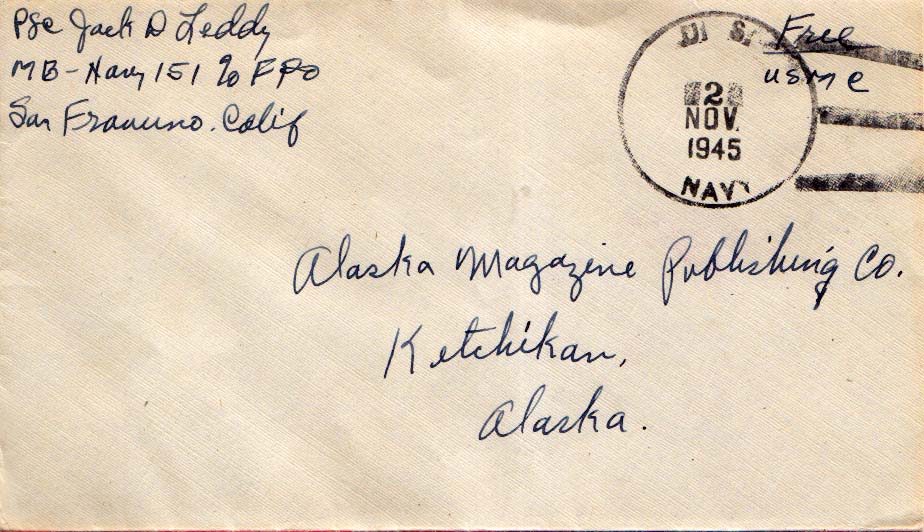 Pfc Jack D Leddy
MB - Navy 151 c/o FPO
San Francisco. Calif
Free
USMC
U. S.
2
NOV.
1945
NAVY
Alaska Magazine Publishing Co.
Ketchikan,
Alaska.